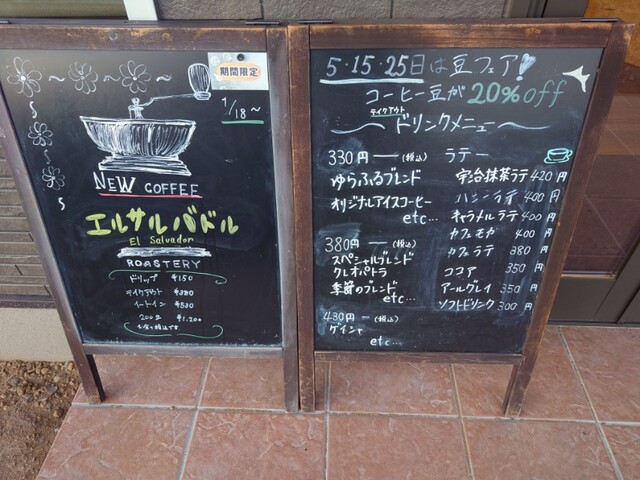 期間限定
1/18～
NEW COFFEE
エルサルバドル
El Salvador
ROASTERY
ドリップ ¥150
テイクアウト ¥380
イートイン ¥530
200g ¥1,200
5・15・25日は豆フェア!
コーヒー豆が20%off
テイクアウト
ドリンクメニュー
330円 ―(税込)
ゆらふるブレンド
オリジナルアイスコーヒー
etc...
380円 ―(税込)
スペシャルブレンド
クレオパトラ
季節のブレンド
etc...
430円 ―(税込)
ゲイシャ
etc...
ラテー
宇治抹茶ラテ 420円
ハニーラテ 400円
キャラメルラテ 400円
カフェモカ 400円
カフェラテ 380円
ココア 350円
アールグレイ 350円
ソフトドリンク 300円